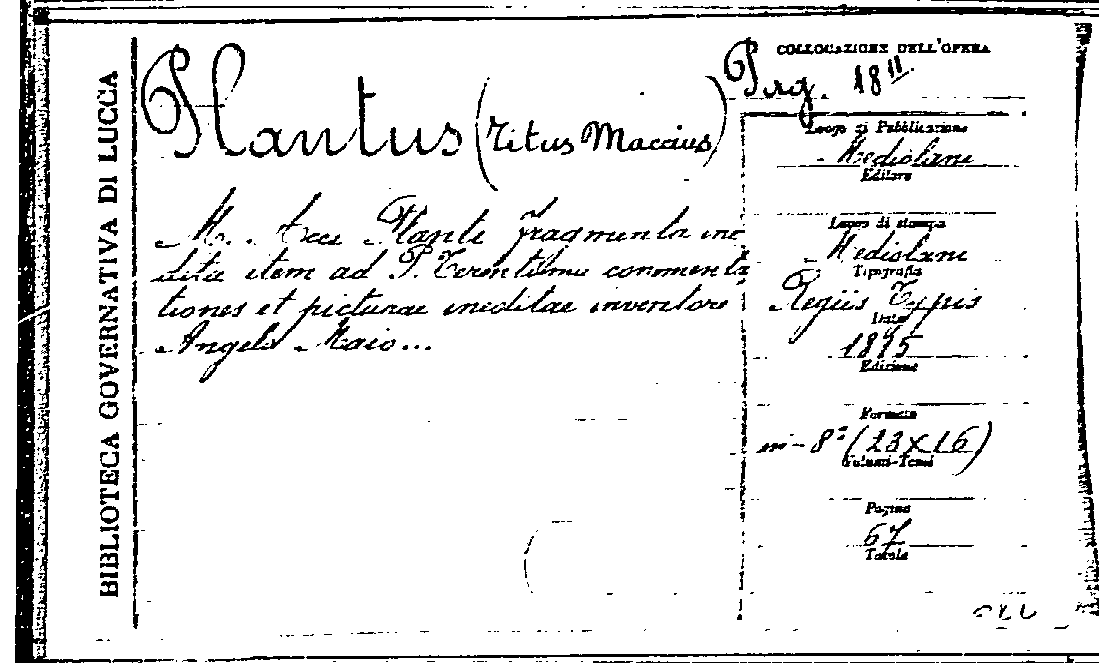 BIBLIOTECA GOVERNATIVA DI LUCCA
Plautus (Titus Maccius)
M. Acci Plauti fragmenta ine
dita item ad P. Terentium commenta
tiones et picturae ineditae inventore
Angelo Maio...
COLLOCAZIONE DELL'OPERA
18
Luogo di Pubblicazione
Mediolani
Editore
Luogo di stampa
Mediolani
Tipografia
Regiis Typis
Data
1815
Edizione
Formato
in-8º (23x16)
Volumi-Tomi
Pagine
67
Tavole